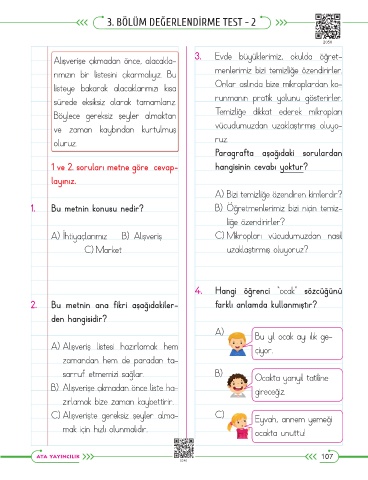 3. BÖLÜM DEĞERLENDİRME TEST - 2
Alışverişe çıkmadan önce, alacakla-
rımızın bir listesini çıkarmalıyız. Bu
listeye bakarak alacaklarımızı kısa
sürede eksiksiz olarak tamamlarız.
Böylece gereksiz şeyler almaktan
ve zaman kaybından kurtulmuş
oluruz.
1 ve 2. soruları metne göre cevap-
layınız.
1. Bu metnin konusu nedir?
A) İhtiyaçlarımız B) Alışveriş
C) Market
2. Bu metnin ana fikri aşağıdakiler-
den hangisidir?
A) Alışveriş listesi hazırlamak hem
zamandan hem de paradan ta-
sarruf etmemizi sağlar.
B) Alışverişe çıkmadan önce liste ha-
zırlamak bize zaman kaybettirir.
C) Alışverişte gereksiz şeyler alma-
mak için hızlı olunmalıdır.
3. Evde büyüklerimiz, okulda öğret-
menlerimiz bizi temizliğe özendirirler.
Onlar aslında bize mikroplardan ko-
runmanın pratik yolunu gösterirler.
Temizliğe dikkat ederek mikropları
vücudumuzdan uzaklaştırmış oluyo-
ruz.
Paragrafta aşağıdaki sorulardan
hangisinin cevabı yoktur?
A) Bizi temizliğe özendiren kimlerdir?
B) Öğretmenlerimiz bizi niçin temiz-
liğe özendirirler?
C) Mikropları vücudumuzdan nasıl
uzaklaştırmış oluyoruz?
4. Hangi öğrenci "ocak" sözcüğünü
farklı anlamda kullanmıştır?
A) Bu yıl ocak ayı ılık ge-
çiyor.
B) Ocakta yarıyıl tatiline
gireceğiz.
C) Eyvah, annem yemeği
ocakta unuttu!
ATA YAYINCILIK
107